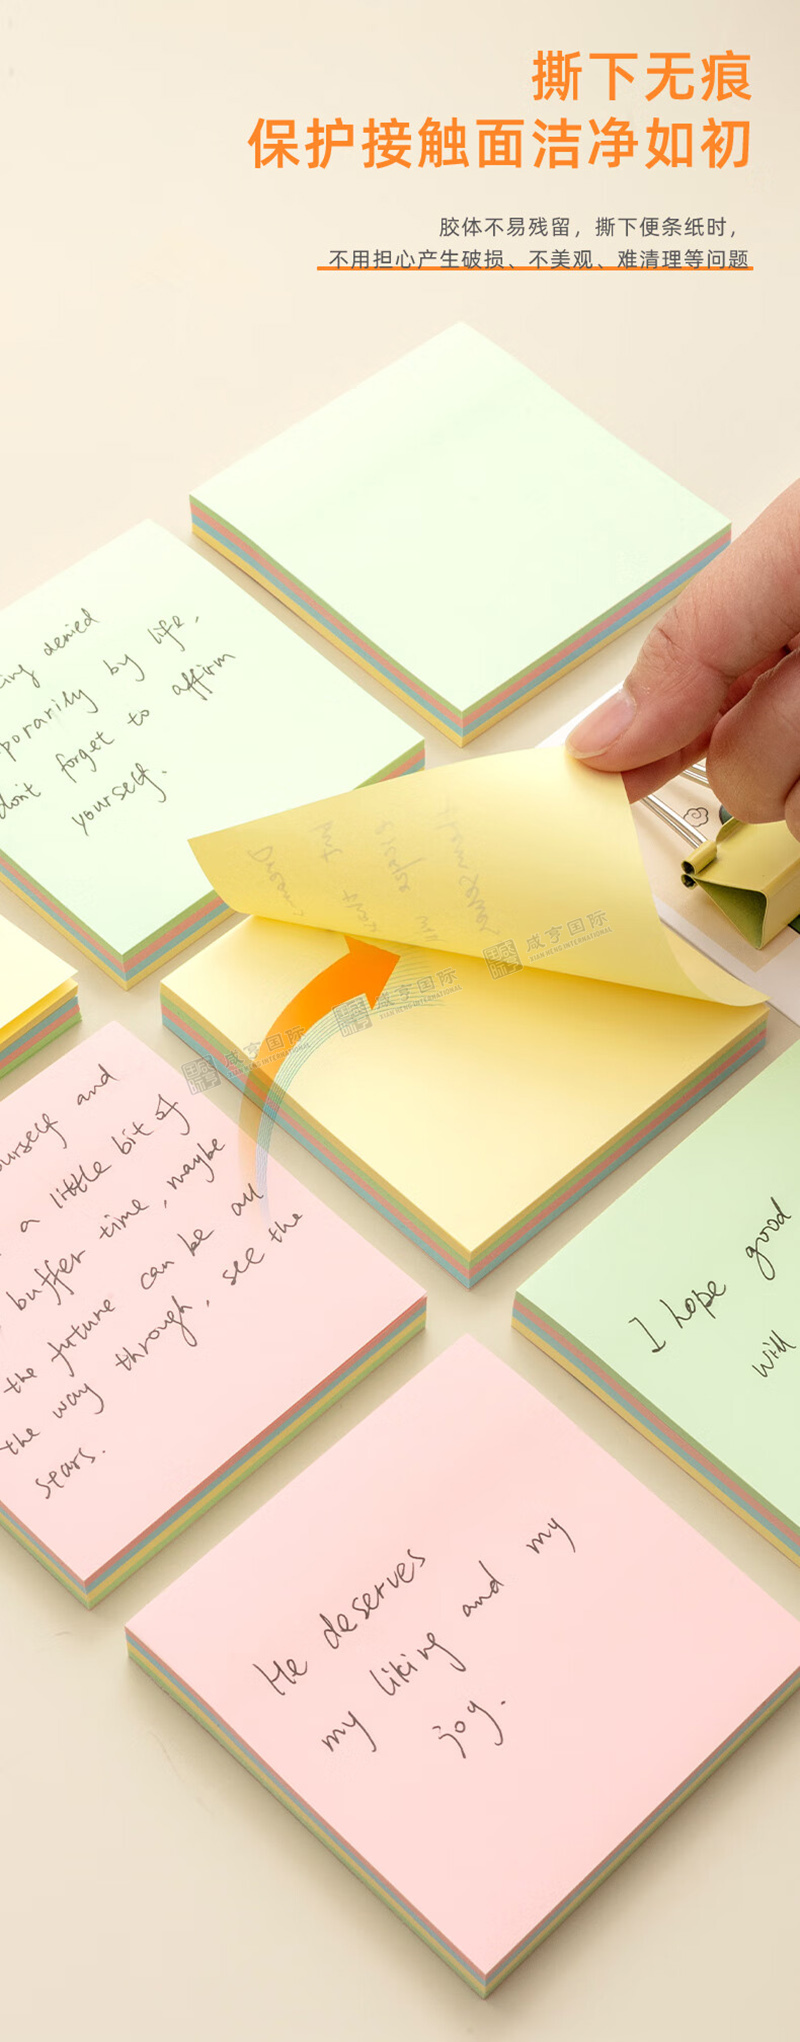 撕下无痕
保护接触面洁净如初
胶体不易残留，撕下便条纸时，
不用担心产生破损、不美观、难清理等问题
denied
by life,
don't forget to affirm
yourself.
咸亨国际
XIAN HENG INTERNATIONAL
咸亨国际
XIAN HENG INTERNATIONAL
咸亨国际
XIAN HENG INTERNATIONAL
and
a little bit of
buffer time, maybe
the future can be all
the way through, see the
sears.
I hope good
will
He deserves
my liking and my
joy.